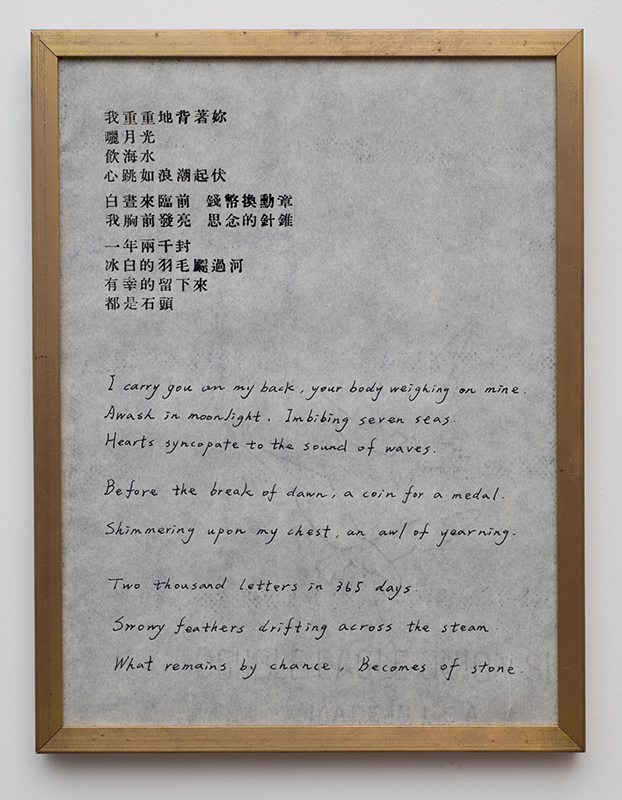 我重重地背著妳
曬月光
飲海水
心跳如浪潮起伏
白晝來臨前 錢幣換勳章
我胸前發亮 思念的針錐
一年兩千封
冰白的羽毛飄過河
有幸的留下來
都是石頭
I carry you on my back, your body weighing on mine.
Awash in moonlight. Imbibing seven seas.
Hearts syncopate to the sound of waves.
Before the break of dawn, a coin for a medal.
Shimmering upon my chest, an awl of yearning.
Two thousand letters in 365 days.
Snowy feathers drifting across the steam.
What remains by chance, Becomes of stone.